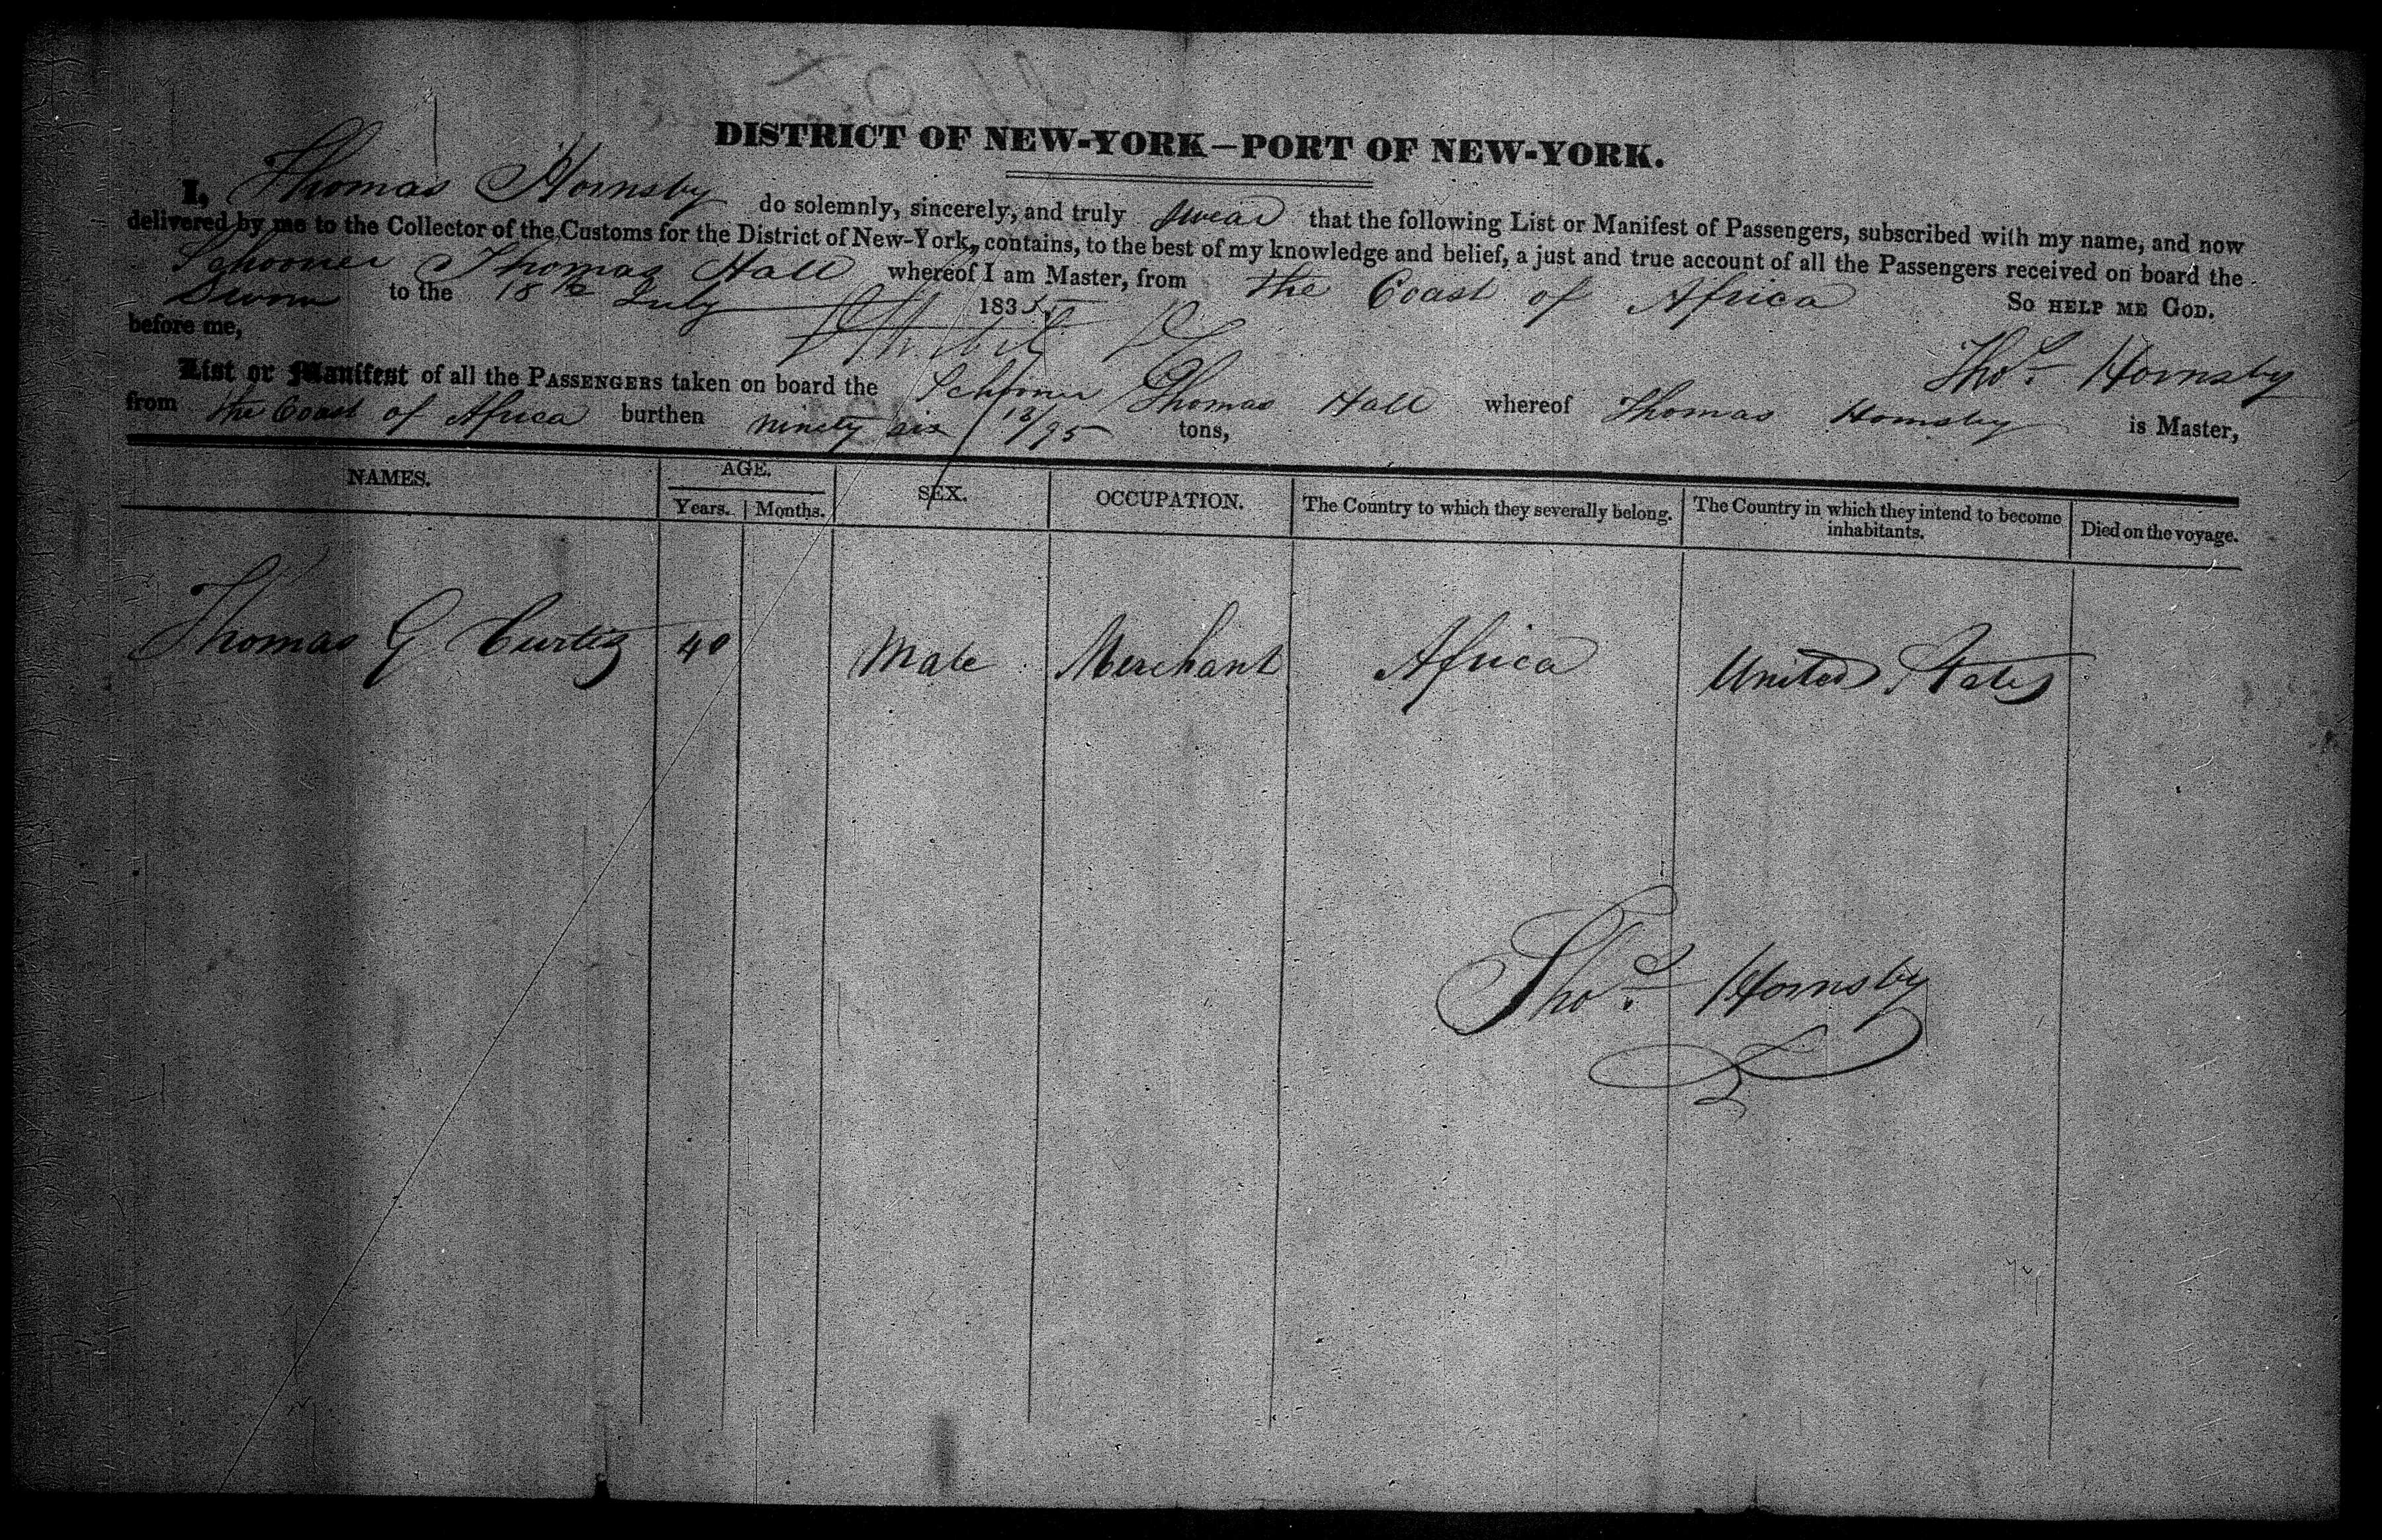 DISTRICT OF NEW-YORK—PORT OF NEW-YORK.
I, Thomas Hornsby do solemnly, sincerely, and truly swear that the following List or Manifest of Passengers, subscribed with my name, and now
delivered by me to the Collector of the Customs for the District of New-York, contains, to the best of my knowledge and belief, a just and true account of all the Passengers received on board the
Schooner Thomas Hall whereof I am Master, from the Coast of Africa
Sworn to the 18th July 1835 So HELP ME GOD.
before me,
Thos Hornsby
List or Manifest of all the PASSENGERS taken on board the Schooner Thomas Hall whereof Thomas Hornsby is Master,
from the Coast of Africa burthen ninety six 13/95 tons,
NAMES. AGE. SEX. OCCUPATION. The Country to which they severally belong. The Country in which they intend to become inhabitants. Died on the voyage.
Years. Months.
Thomas G Curtis 40 Male Merchant Africa United States
Thos Hornsby